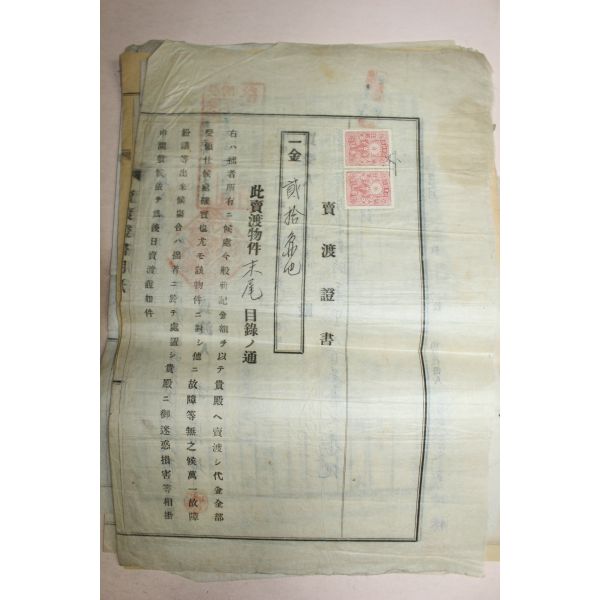 賣渡證書
一金 貳拾
此賣渡物件末尾目錄ノ通
右ハ拙者所有ニ候處今般前記金額ヲ以テ貴殿ヘ賣渡シ代金全部
受領仕候處確實也尤モ該物件ニ對シ他ニ故障等無之候萬一故障
紛議等出來候場合ハ拙者ニ於テ處置シ貴殿ニ御迷惑損害等相掛
申間敷候依テ爲後日賣渡證如件